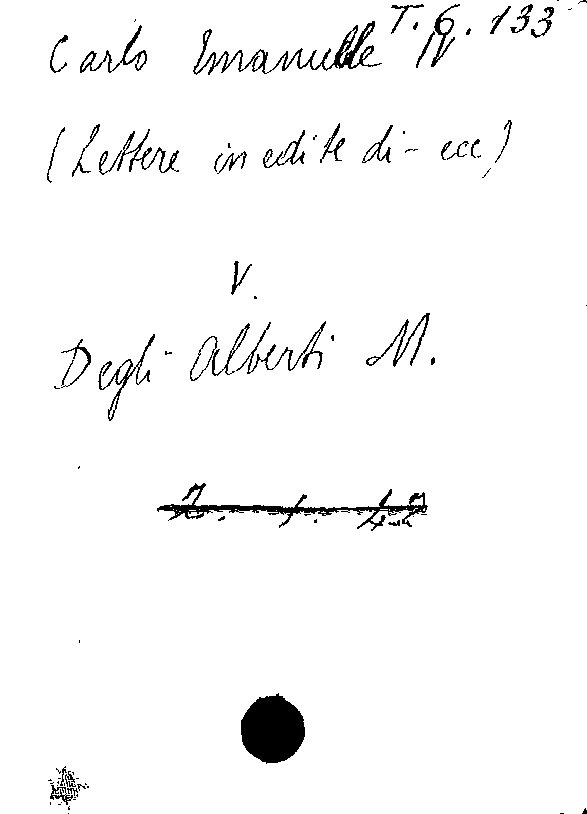 T. 6. 133
Carlo Emanuele IV
(Lettere inedite di - ecc)
V.
Degli Alberti M.